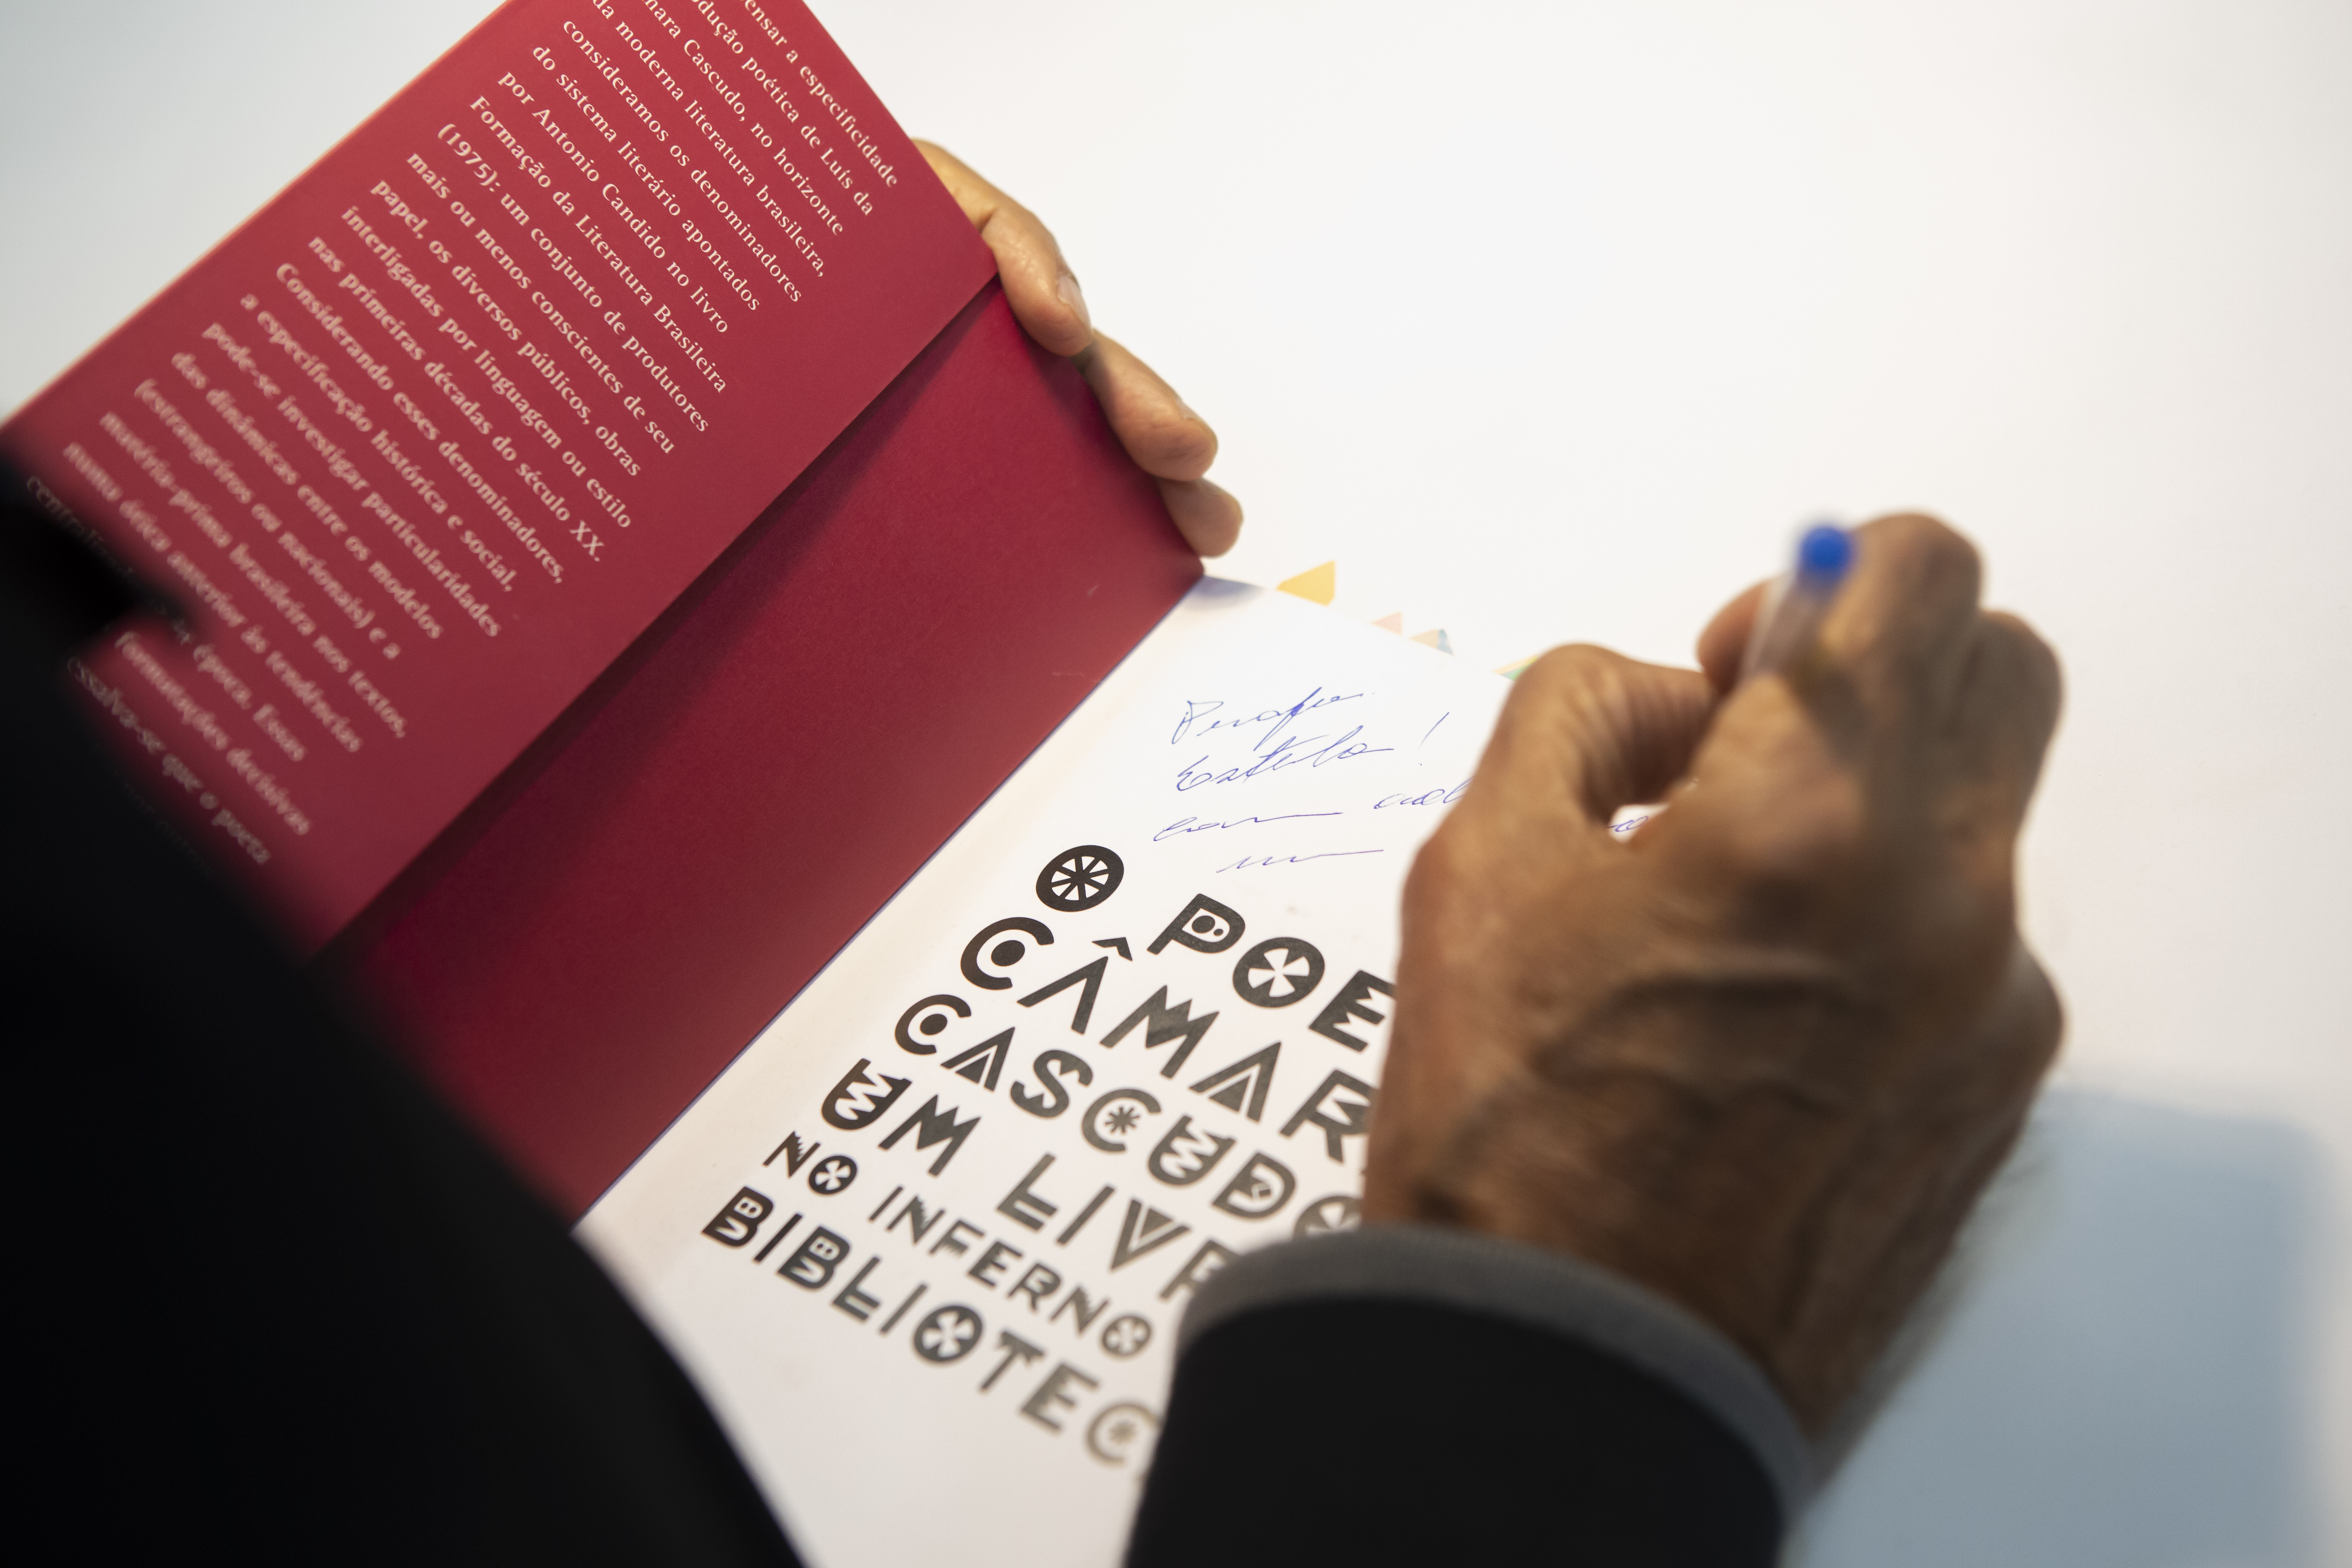 ensar a especificidade
dução poética de Luís da
mara Cascudo, no horizonte
da moderna literatura brasileira,
consideramos os denominadores
do sistema literário apontados
por Antonio Candido no livro
Formação da Literatura Brasileira
(1975): um conjunto de produtores
mais ou menos conscientes de seu
papel, os diversos públicos, obras
interligadas por linguagem ou estilo
nas primeiras décadas do século XX.
Considerando esses denominadores,
a especificação histórica e social,
pode-se investigar particularidades
das dinâmicas entre os modelos
(estrangeiros ou nacionais) e a
matéria-prima brasileira nos textos,
numa ótica anterior às tendências
época. Essas
formulações decisivas
ssalva-se que o poeta
Estela!
com
O POE
CÂMAR
CASCUDO
UM LIVR
NO INFERNO
BIBLIOTEC